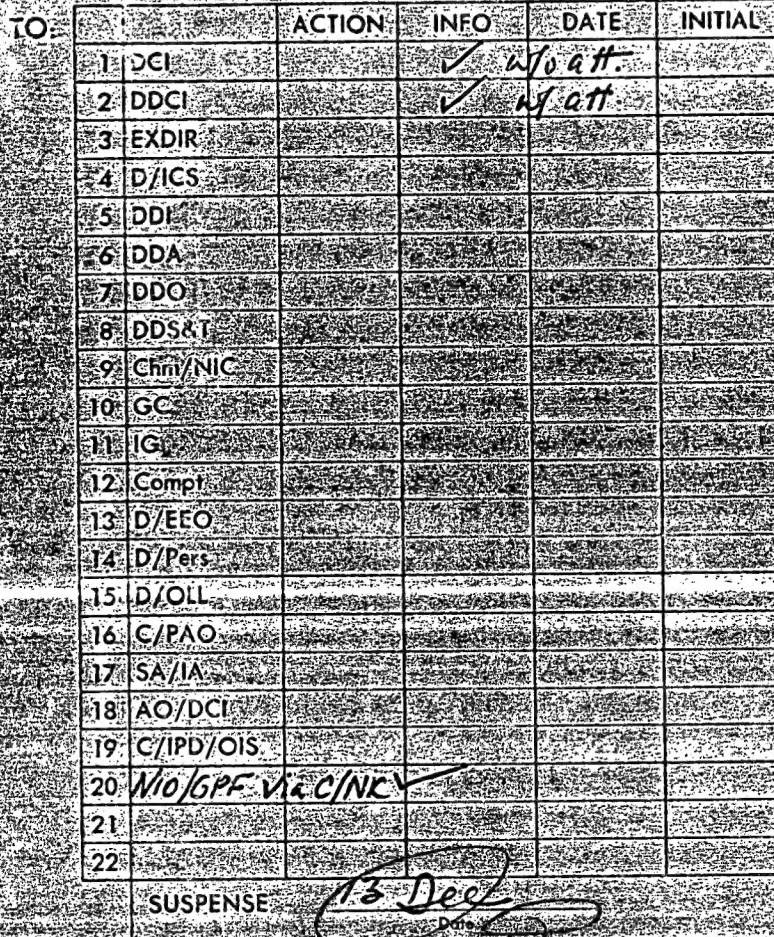 TO: ACTION INFO DATE INITIAL
1 DCI ✓ w/o att.
2 DDCI ✓ w/ att.
3 EXDIR
4 D/ICS
5 DDI
6 DDA
7 DDO
8 DDS&T
9 Chm/NIC
10 GC
11 IG
12 Compt
13 D/EEO
14 D/Pers
15 D/OLL
16 C/PAO
17 SA/IA
18 AO/DCI
19 C/IPD/OIS
20 NIO/GPF via C/NIC ✓
21
22
SUSPENSE 13 Dec
Date